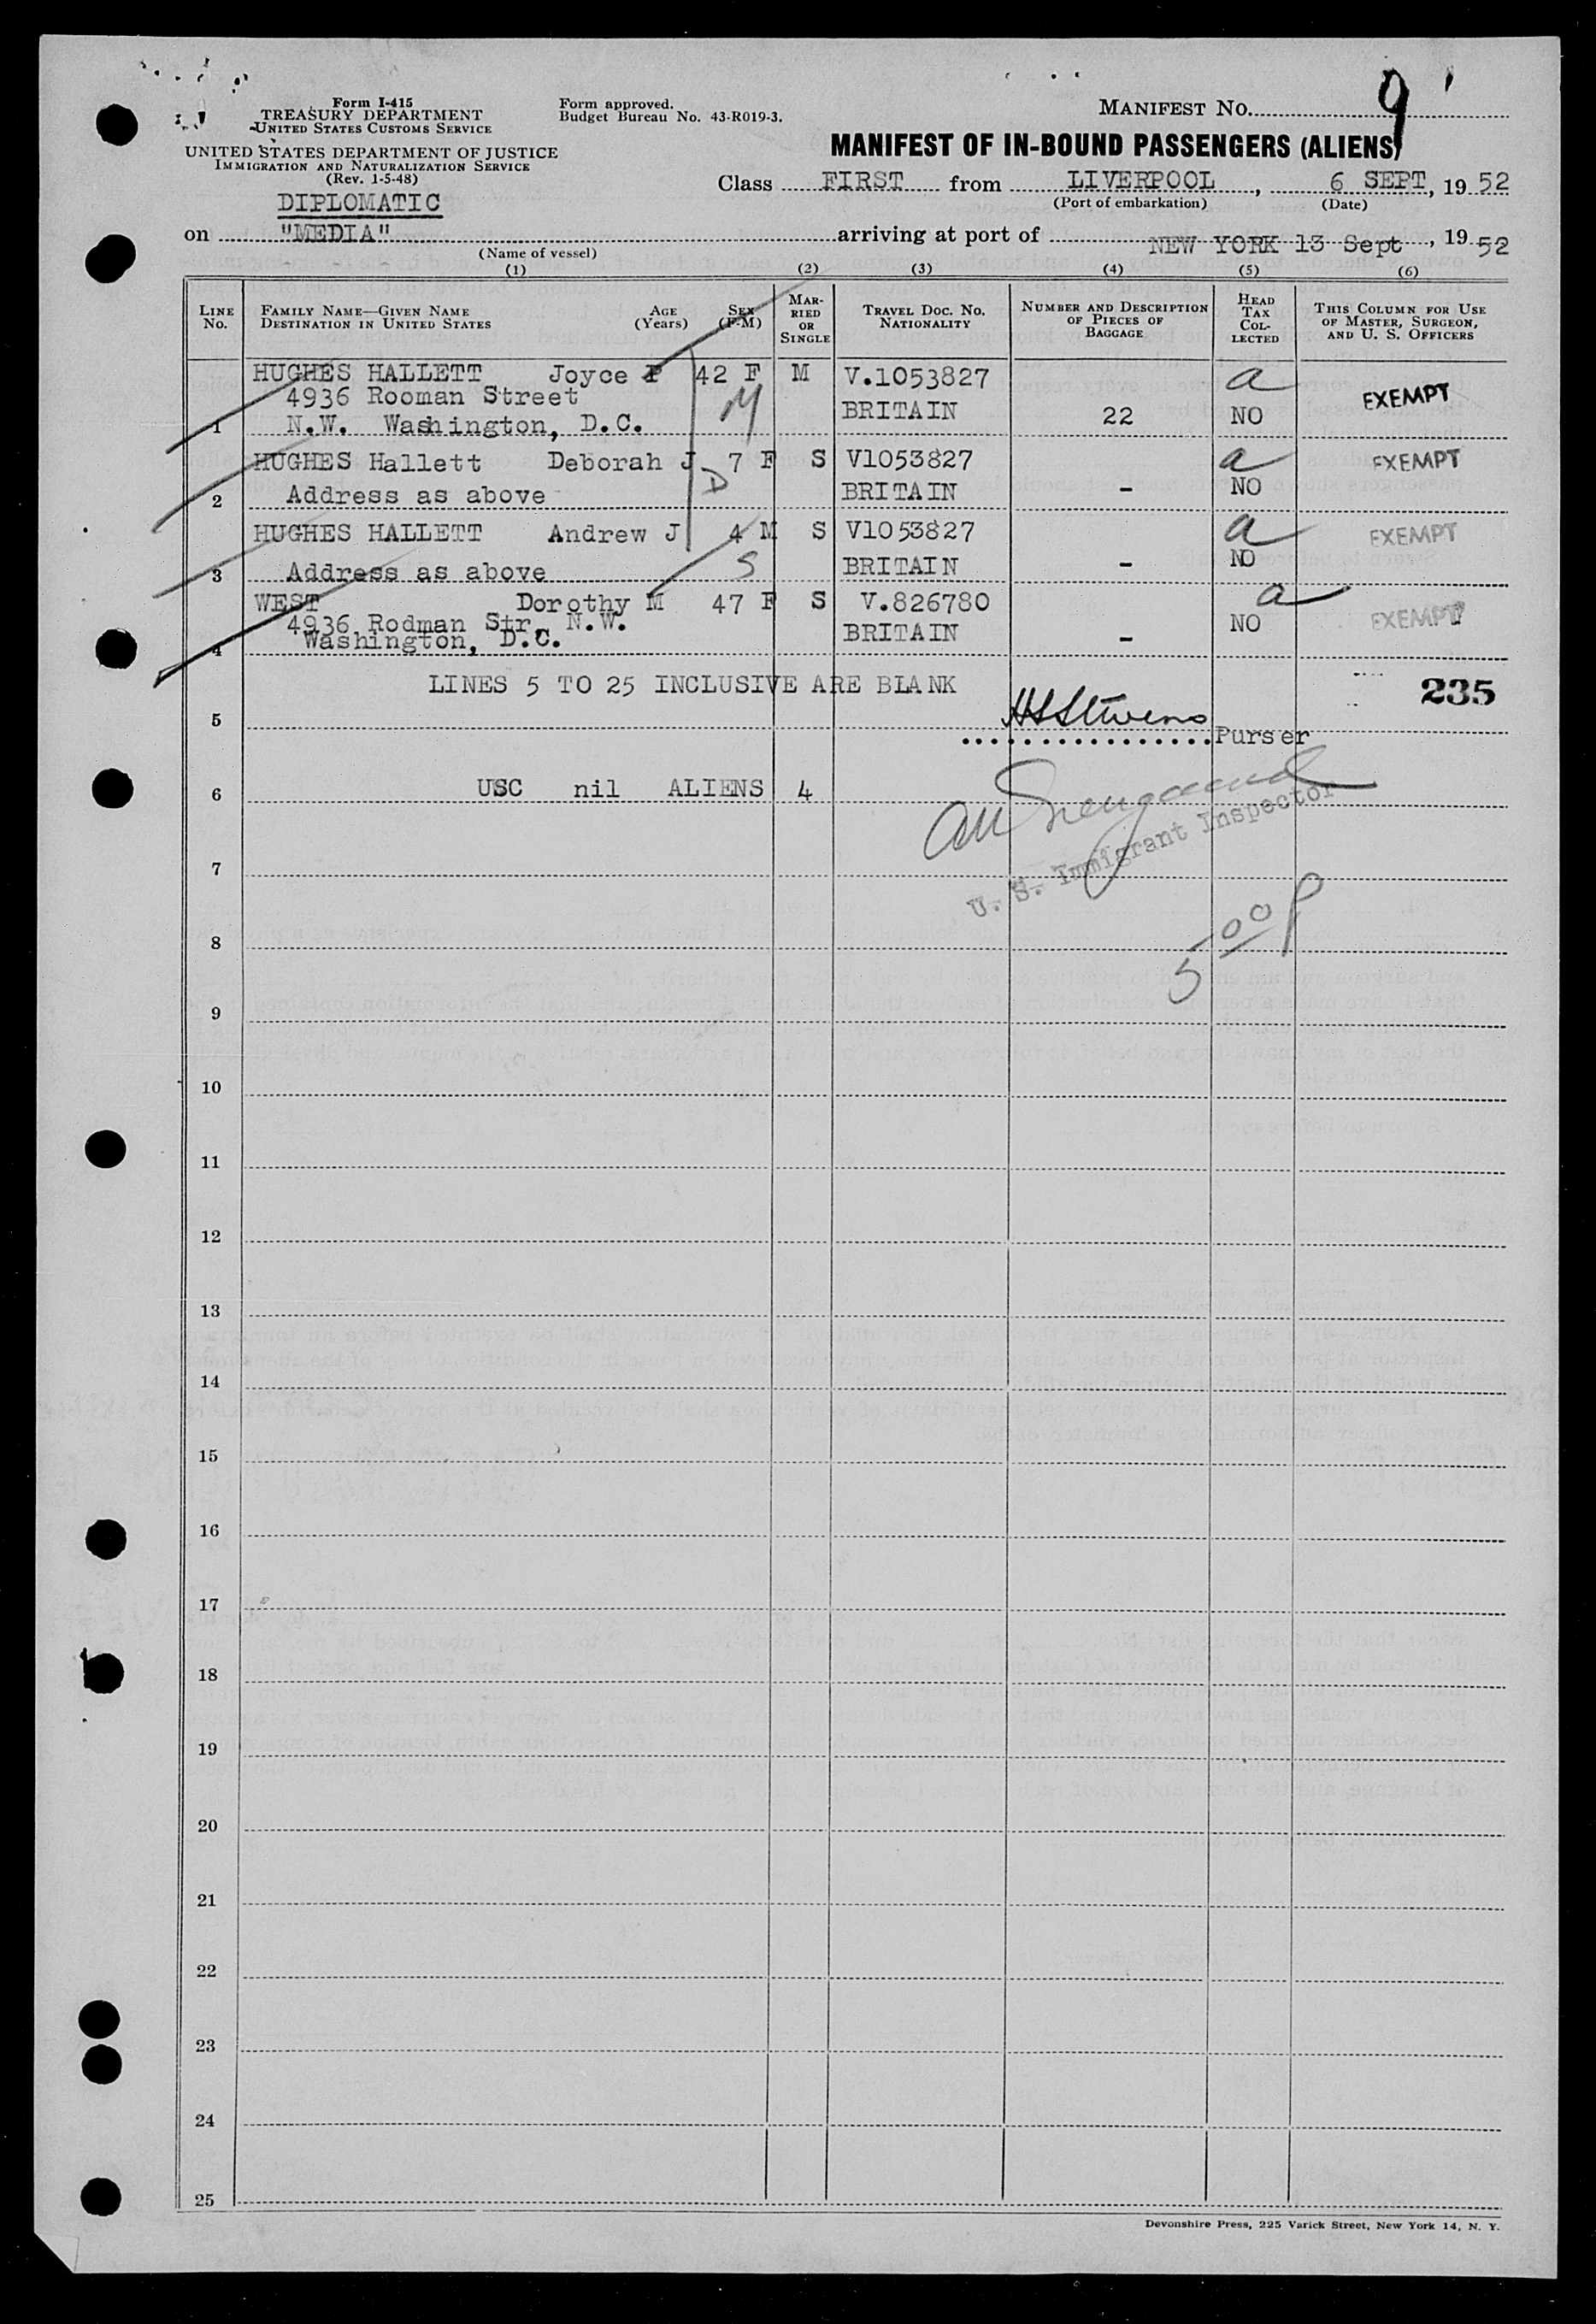 Form I-415
TREASURY DEPARTMENT
UNITED STATES CUSTOMS SERVICE
UNITED STATES DEPARTMENT OF JUSTICE
IMMIGRATION AND NATURALIZATION SERVICE
(Rev. 1-5-48)
DIPLOMATIC
Form approved.
Budget Bureau No. 43-R019-3.
MANIFEST NO. 9
MANIFEST OF IN-BOUND PASSENGERS (ALIENS)
Class FIRST from LIVERPOOL, 6 SEPT, 19 52
(Port of embarkation) (Date)
on "MEDIA" arriving at port of NEW YORK 13 Sept, 19 52
(Name of vessel)
(1) (2) (3) (4) (5) (6)
LINE NO.
FAMILY NAME—GIVEN NAME AGE SEX
DESTINATION IN UNITED STATES (Years) (F-M)
MARRIED OR SINGLE
TRAVEL DOC. NO. NATIONALITY
NUMBER AND DESCRIPTION OF PIECES OF BAGGAGE
HEAD TAX COLLECTED
THIS COLUMN FOR USE OF MASTER, SURGEON, AND U. S. OFFICERS
HUGHES HALLETT Joyce P 42 F M V.1053827 a EXEMPT
4936 Rooman Street M BRITAIN 22 NO
1 N.W. Washington, D.C.
HUGHES Hallett Deborah J 7 F S V1053827 a EXEMPT
2 Address as above D BRITAIN - NO
HUGHES HALLETT Andrew J 4 M S V1053827 a EXEMPT
3 Address as above S BRITAIN - NO
WEST Dorothy M 47 F S V.826780 a EXEMPT
4936 Rodman Str, N.W. BRITAIN - NO
4 Washington, D.C.
LINES 5 TO 25 INCLUSIVE ARE BLANK 235
5 Stevens Purser
6 USC nil ALIENS 4
U. S. Immigrant Inspector
7
5 00 P
8
9
10
11
12
13
14
15
16
17
18
19
20
21
22
23
24
25
Devonshire Press, 225 Varick Street, New York 14, N. Y.